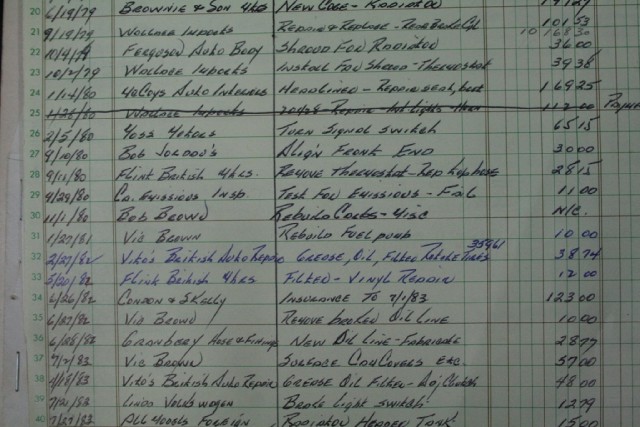 20 6/19/79 Brownie & Son 4 Hrs New Core - Radiator
21 9/19/79 Wallace Imports 101 53
22 10/4/79 Ferguson Auto Body Shroud For Radiator 36 00
23 10/2/79 Wallace Imports Install Fan Shroud - Thermostat 39 38
24 Auto Interiors Headliner - Repair seat, 169 25
25 1/26/80 Wallace Imports Repair 112 00
26 2/5/80 Motors Turn Signal Switch 65 15
27 9/10/80 Bob Jordon's Align Front End 30 00
28 9/11/80 Flint British Remove Thermostat - Rep hose 28 15
29 9/29/80 Ca. Emissions Insp. Test For Emissions - Fail 11 00
30 11/1/80 Bob Brown Rebuild Carbs - Misc N/C.
31 1/27/81 Vic Brown Rebuild Fuel pump 10 00
32 2/27/82 Vito's British Auto Repair Grease, Oil, Filter Rotate Tires 35961 38 74
33 5/20/82 Flink British Filter - Vinyl Repair 12 00
34 6/26/82 Condon & Skelly Insurance To 7/1/83 123 00
35 6/27/82 Vic Brown Remove broken Oil Line 10 00
36 6/28/82 Cranbery Hose & Fittings New Oil Line - Fabricate 28 77
37 7/2/83 Vic Brown Surface Cam Covers Etc. 57 00
38 7/18/83 Vito's British Auto Repair Grease Oil Filter - Adj Clutch 48 00
39 7/21/83 Linds Volkswagen Brake Light Switch 12 79
40 7/27/83 All Foreign Radiator Header Tank 15 00